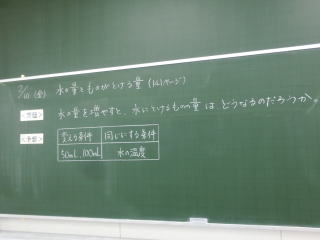 2/10(金) 水の量とものがとける量 (141ページ)
<問題> 水の量を増やすと、水にとけるものの量はどうなるのだろうか。
<予想>
変える条件 同じにする条件
50mL、100mL 水の温度